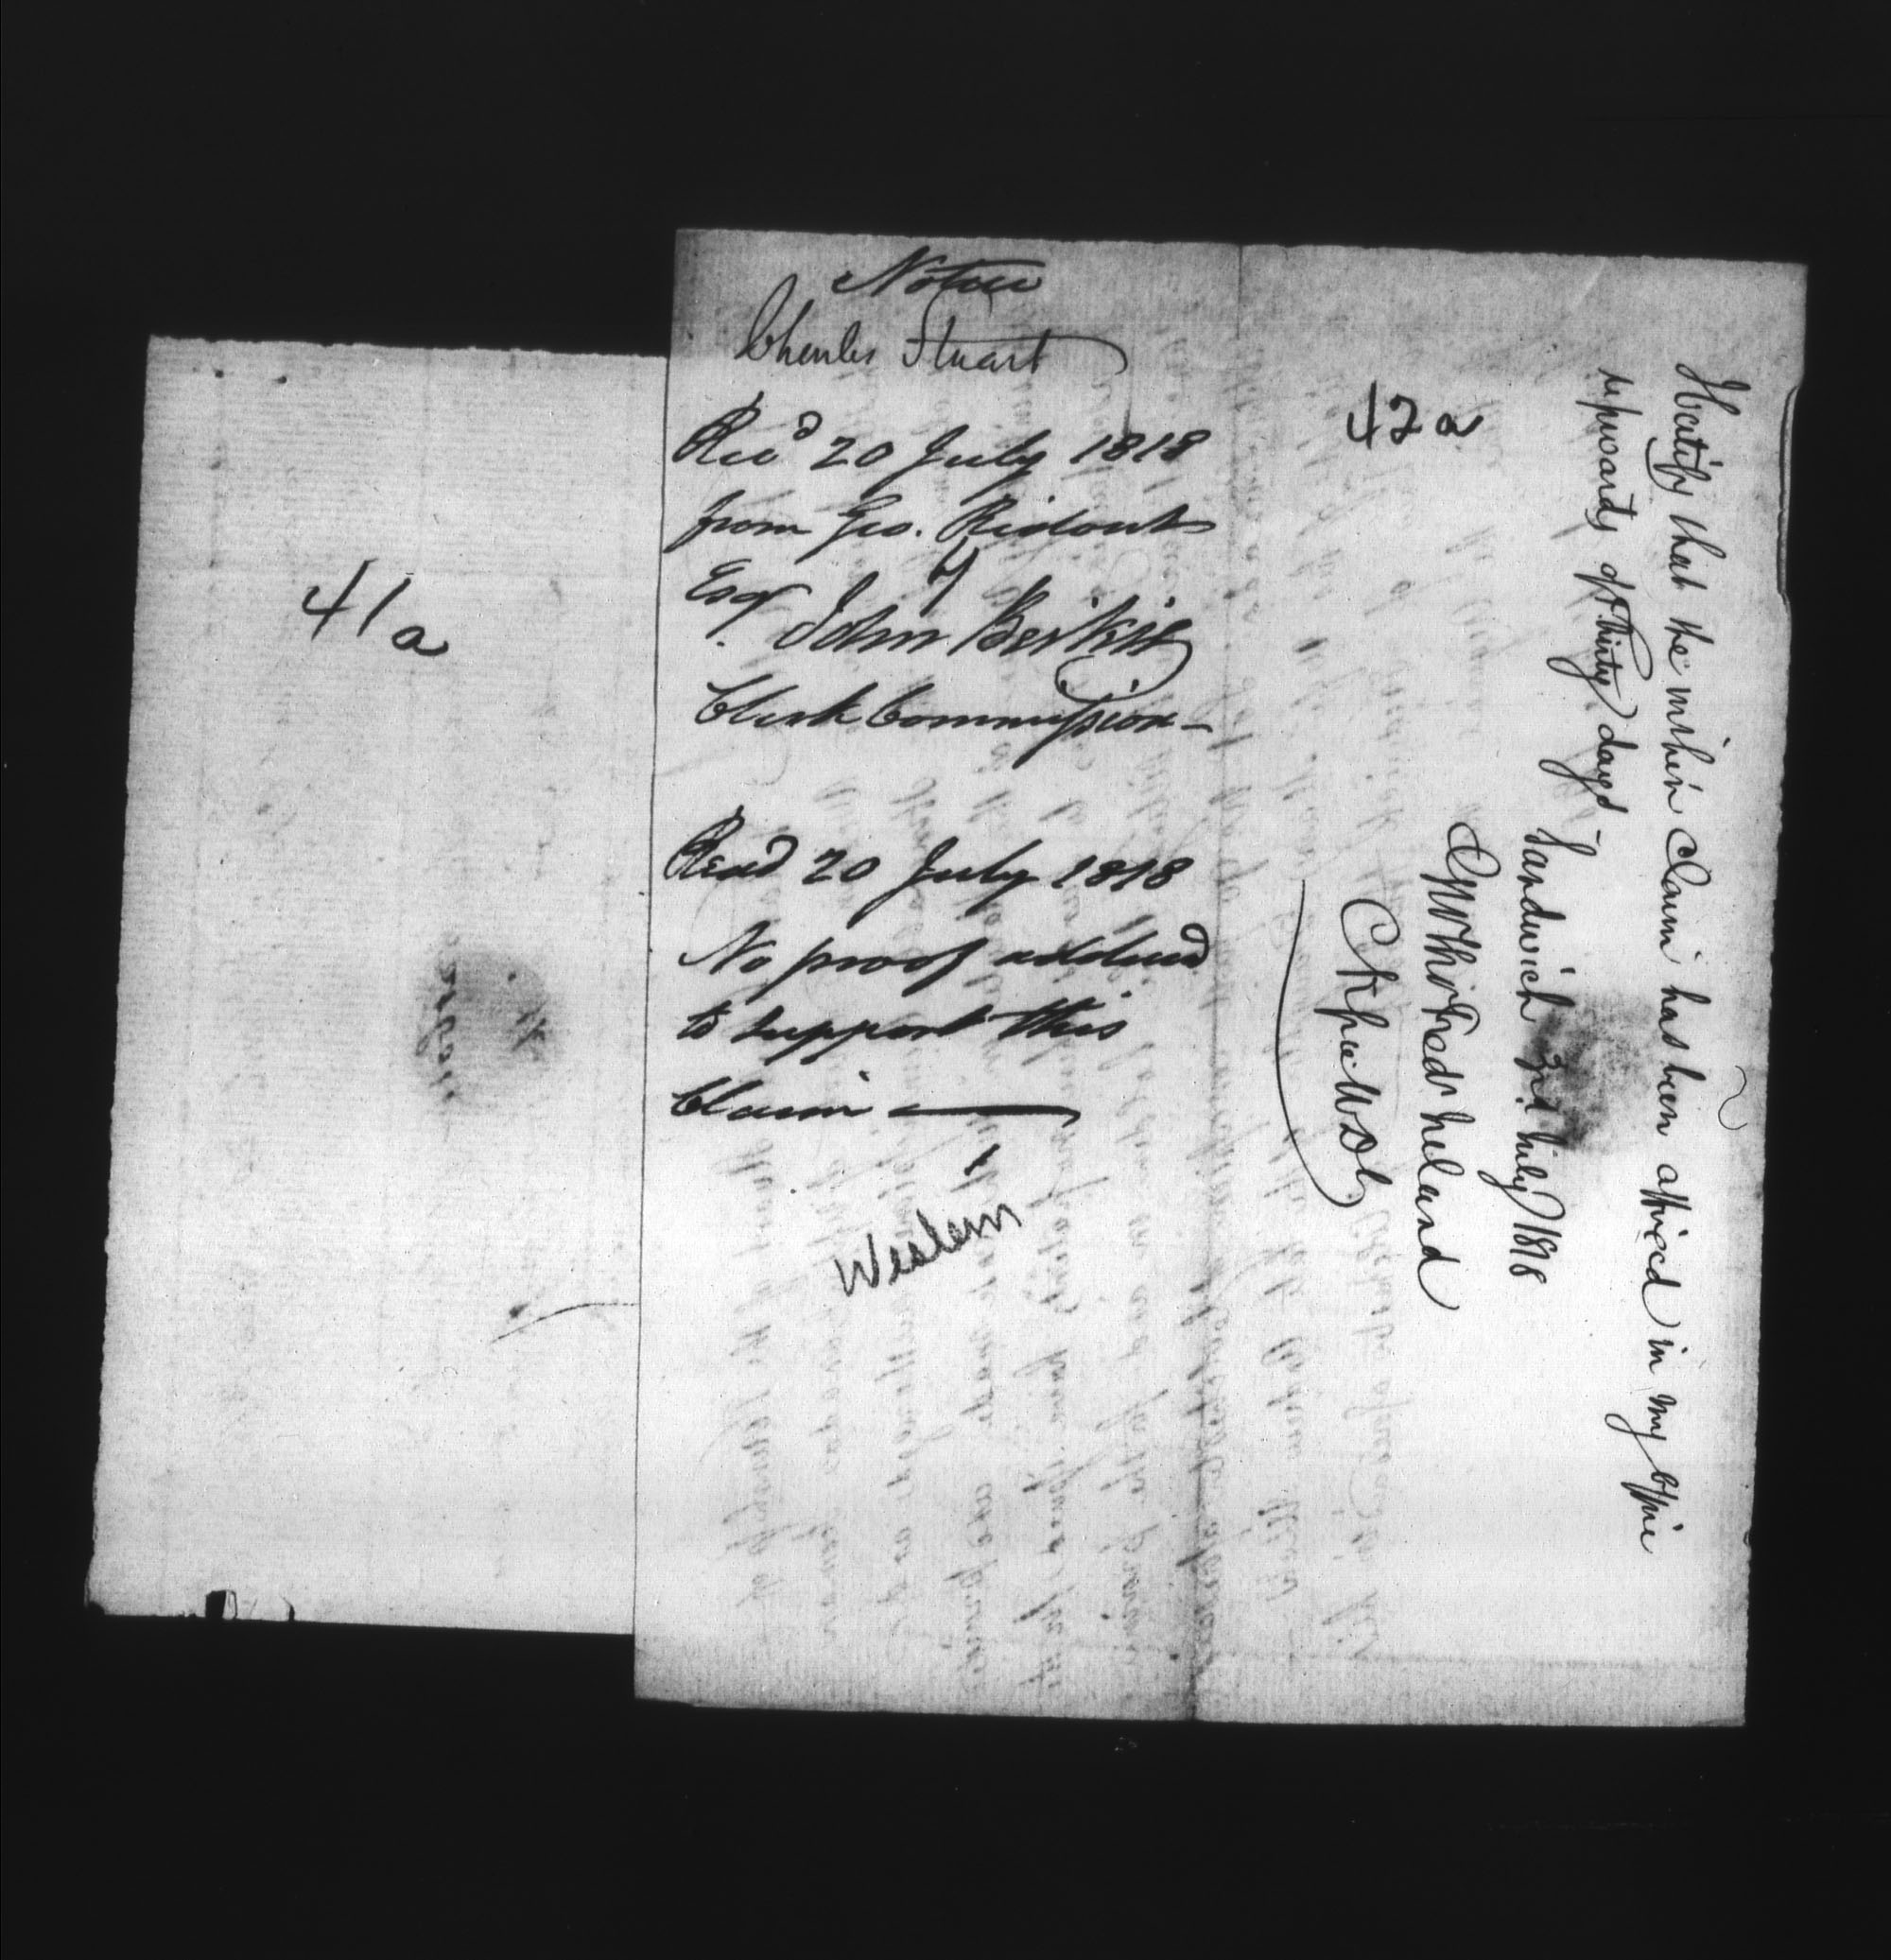 41a
Notice
Charles Stuart
Rec'd 20 July 1818
from Geo. Ridout
Esq.
John Beikie
Clerk Commission -
Read 20 July 1818
No proof adduced
to support this
Claim —
Western
42a
I Certify that the within Claim has been affixed in my Office
upwards of thirty days
Sandwich 3rd July 1818
Geo Th Fred Ireland
C K P W D